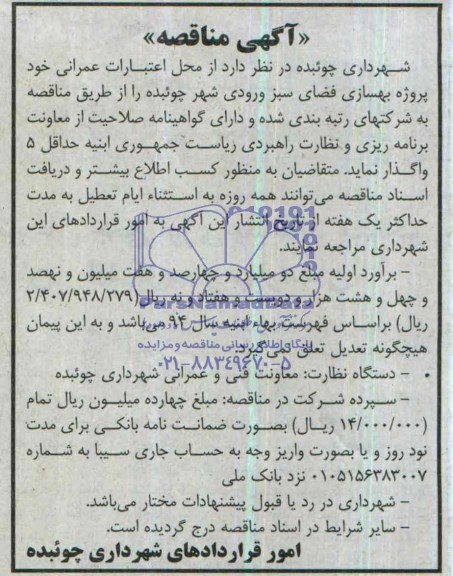 «آگهی مناقصه»
شهرداری چوئبده در نظر دارد از محل اعتبارات عمرانی خود
پروژه بهسازی فضای سبز ورودی شهر چوئبده را از طریق مناقصه
به شرکتهای رتبه بندی شده و دارای گواهینامه صلاحیت از معاونت
برنامه ریزی و نظارت راهبردی ریاست جمهوری ابنیه حداقل ۵
واگذار نماید. متقاضیان به منظور کسب اطلاع بیشتر و دریافت
اسناد مناقصه می‌توانند همه روزه به استثناء ایام تعطیل به مدت
حداکثر یک هفته از تاریخ انتشار این آگهی به امور قراردادهای این
شهرداری مراجعه نمایند.
– برآورد اولیه مبلغ دو میلیارد و چهارصد و هفت میلیون و نهصد
و چهل و هشت هزار و دویست و هفتاد و نه ریال (۲/۴۰۷/۹۴۸/۲۷۹
ریال) براساس فهرست بهاء ابنیه سال ۹۴ می‌باشد و به این پیمان
هیچگونه تعدیل تعلق نمی‌گیرد.
– دستگاه نظارت: معاونت فنی و عمرانی شهرداری چوئبده
– سپرده شرکت در مناقصه: مبلغ چهارده میلیون ریال تمام
(۱۴/۰۰۰/۰۰۰ ریال) بصورت ضمانت نامه بانکی برای مدت
نود روز و یا بصورت واریز وجه به حساب جاری سیبا به شماره
۰۱۰۵۱۵۶۳۸۳۰۰۷ نزد بانک ملی
– شهرداری در رد یا قبول پیشنهادات مختار می‌باشد.
– سایر شرایط در اسناد مناقصه درج گردیده است.
امور قراردادهای شهرداری چوئبده
ParsNamadData
پایگاه اطلاع رسانی مناقصه و مزایده
۰۲۱-۸۸۳۴۹۶۷۰-۵